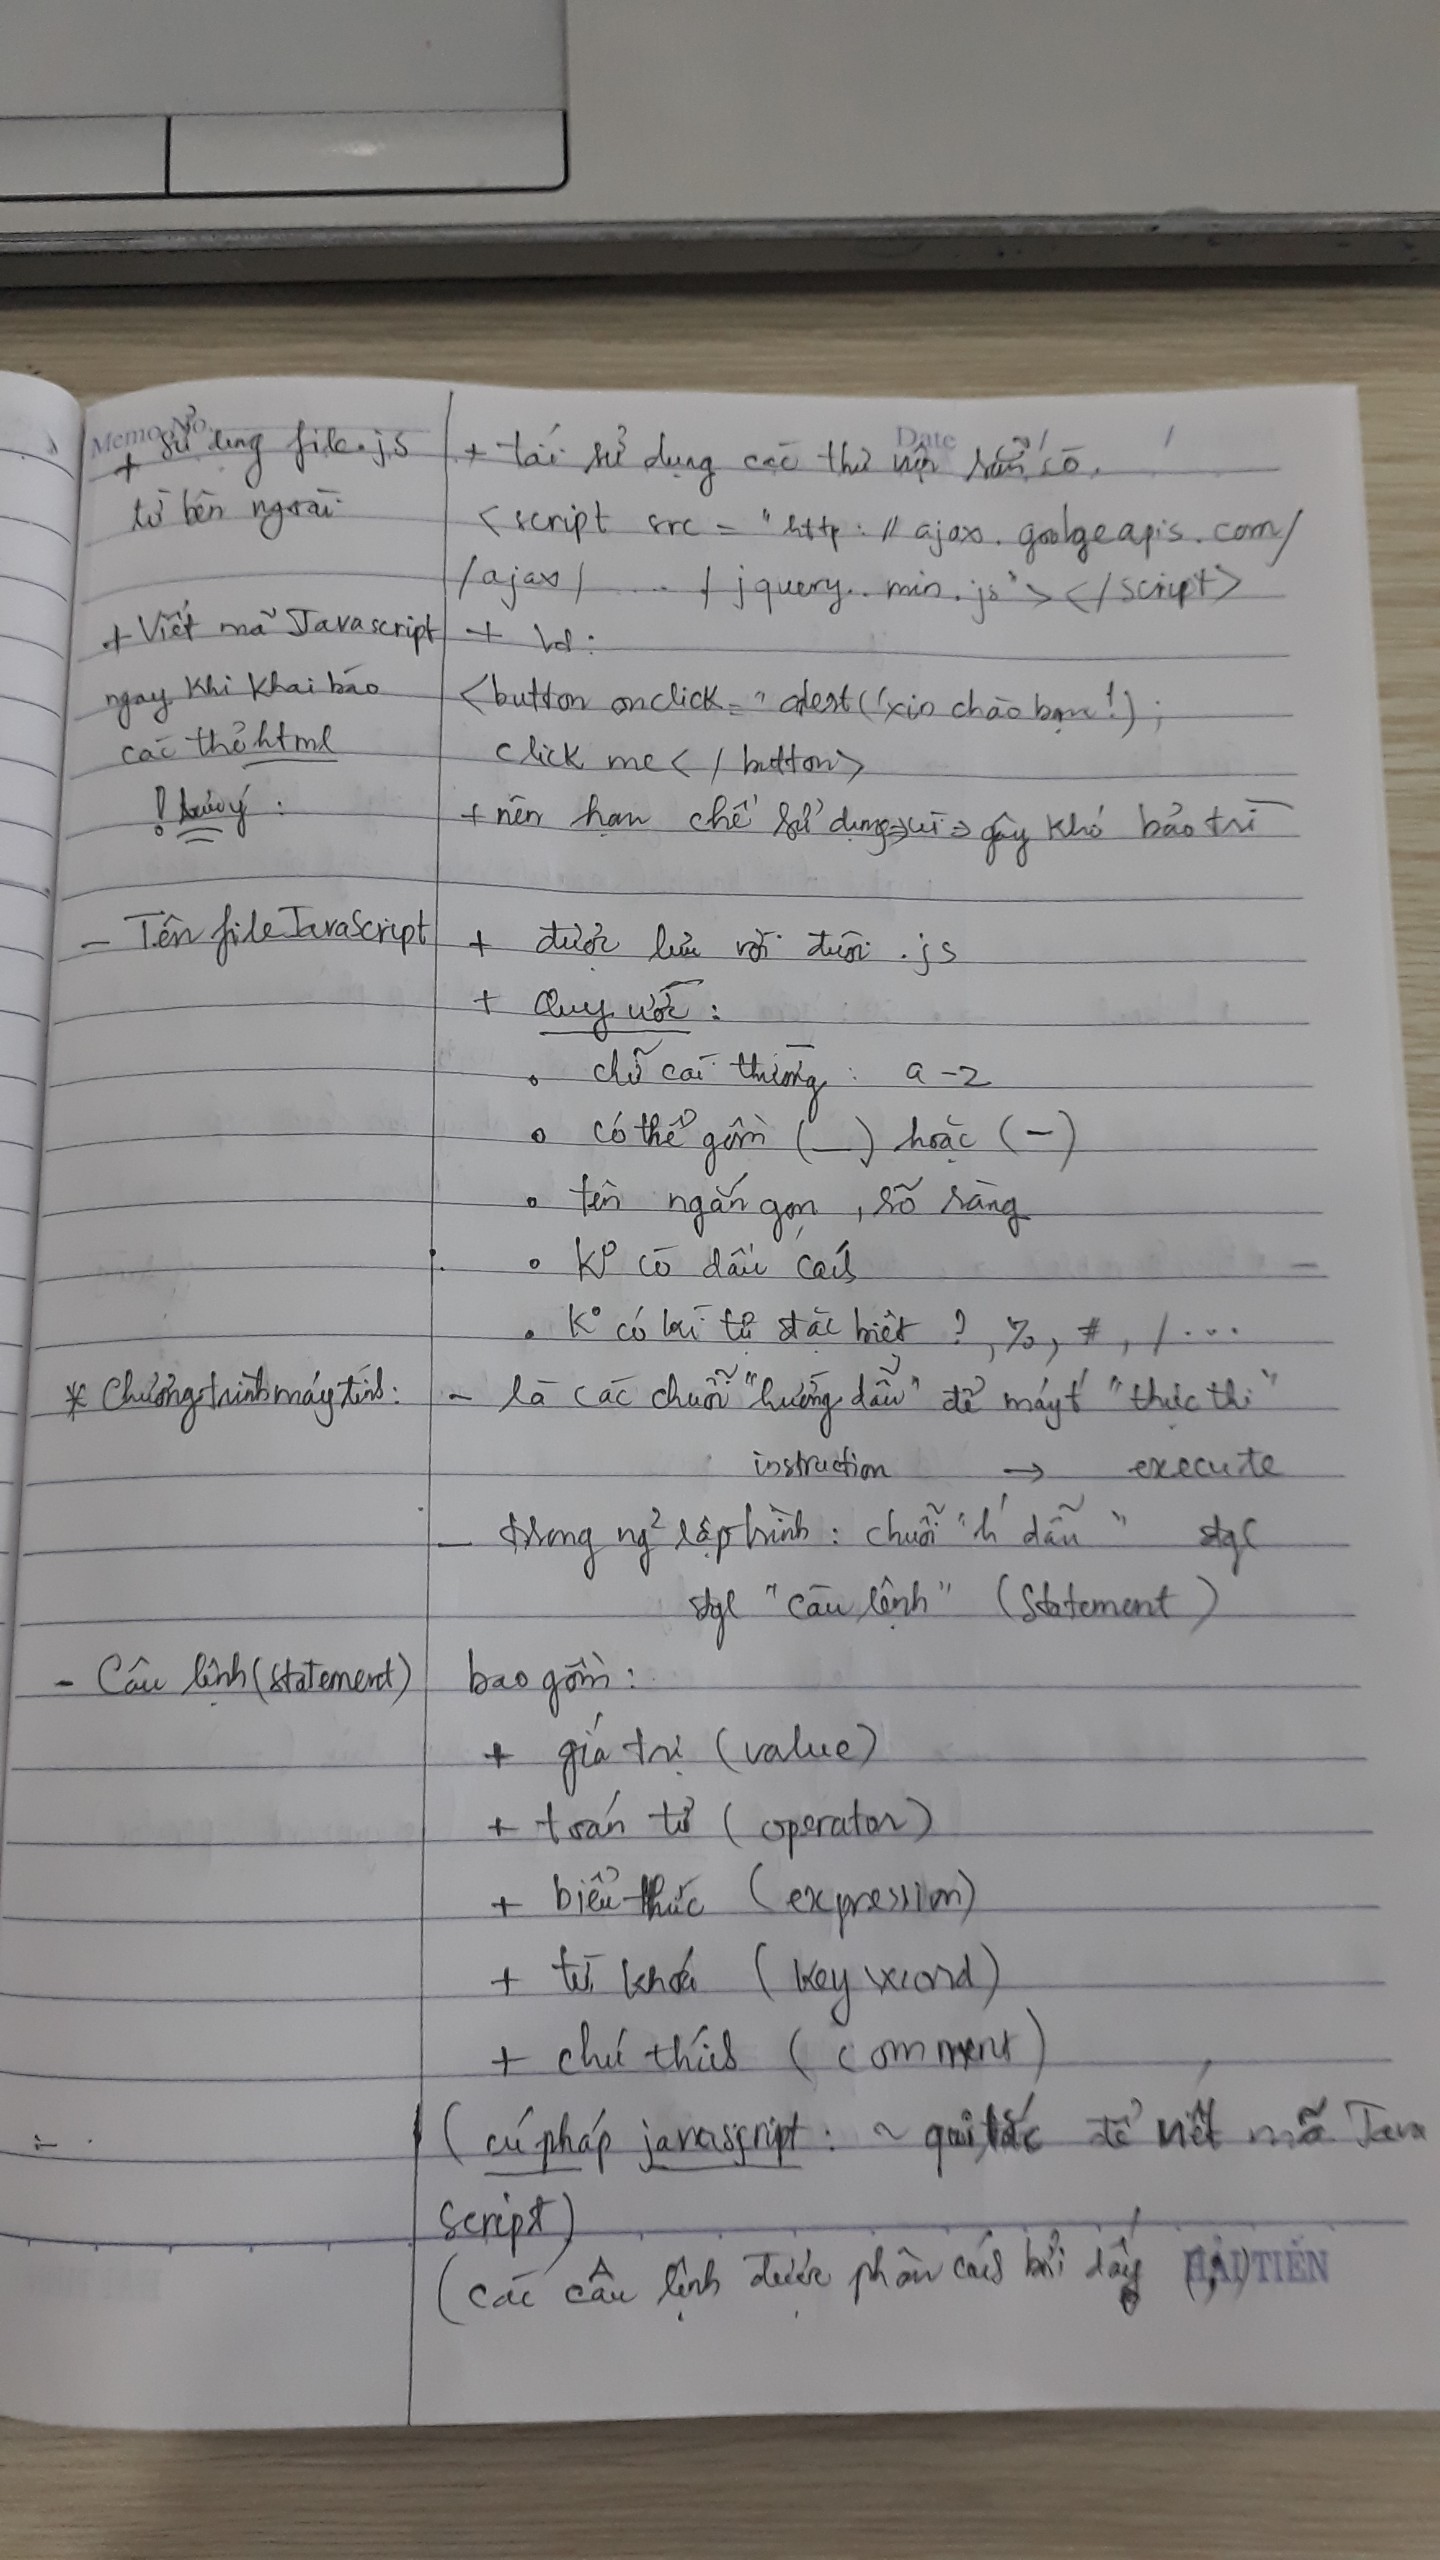 Memo No.
Date / /
+ Sử dụng file.js
từ bên ngoài
+ tái sử dụng các thư viện sẵn có.
<script src = "http://ajax.goolgeapis.com/
/ajax/ .... / jquery..min.js"></script>
+ Viết mã Javascript
ngay khi khai báo
các thẻ html
+ Vd:
<button onclick="alert('xin chào bạn!');
click me</button>
! Lưu ý:
+ nên hạn chế sử dụng => vì => gây khó bảo trì
- Tên file JavaScript
+ được lưu với đuôi .js
+ Quy ước:
• chữ cái thường: a-z
• có thể gồm (_) hoặc (-)
• tên ngắn gọn, rõ ràng
• K° có dấu cách
• K° có kí tự đặc biệt ?, %, #, / ...
* Chương trình máy tính:
- là các chuỗi "hướng dẫn" để máy t' "thực thi"
instruction → execute
- trong ng² lập trình: chuỗi "h' dẫn" đgl
đgl "câu lệnh" (Statement)
- Câu lệnh (statement)
bao gồm:
+ giá trị (value)
+ toán tử (operator)
+ biểu thức (expression)
+ từ khoá (keyword)
+ chú thích (comment)
(cú pháp javascript: ~ qui tắc để viết mã Java
script)
(các câu lệnh được phân cách bởi dấy (;)
HẢI TIẾN